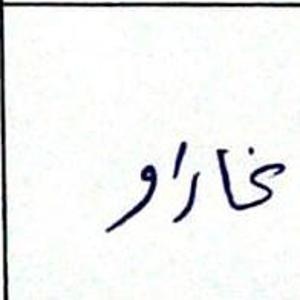 خاراو